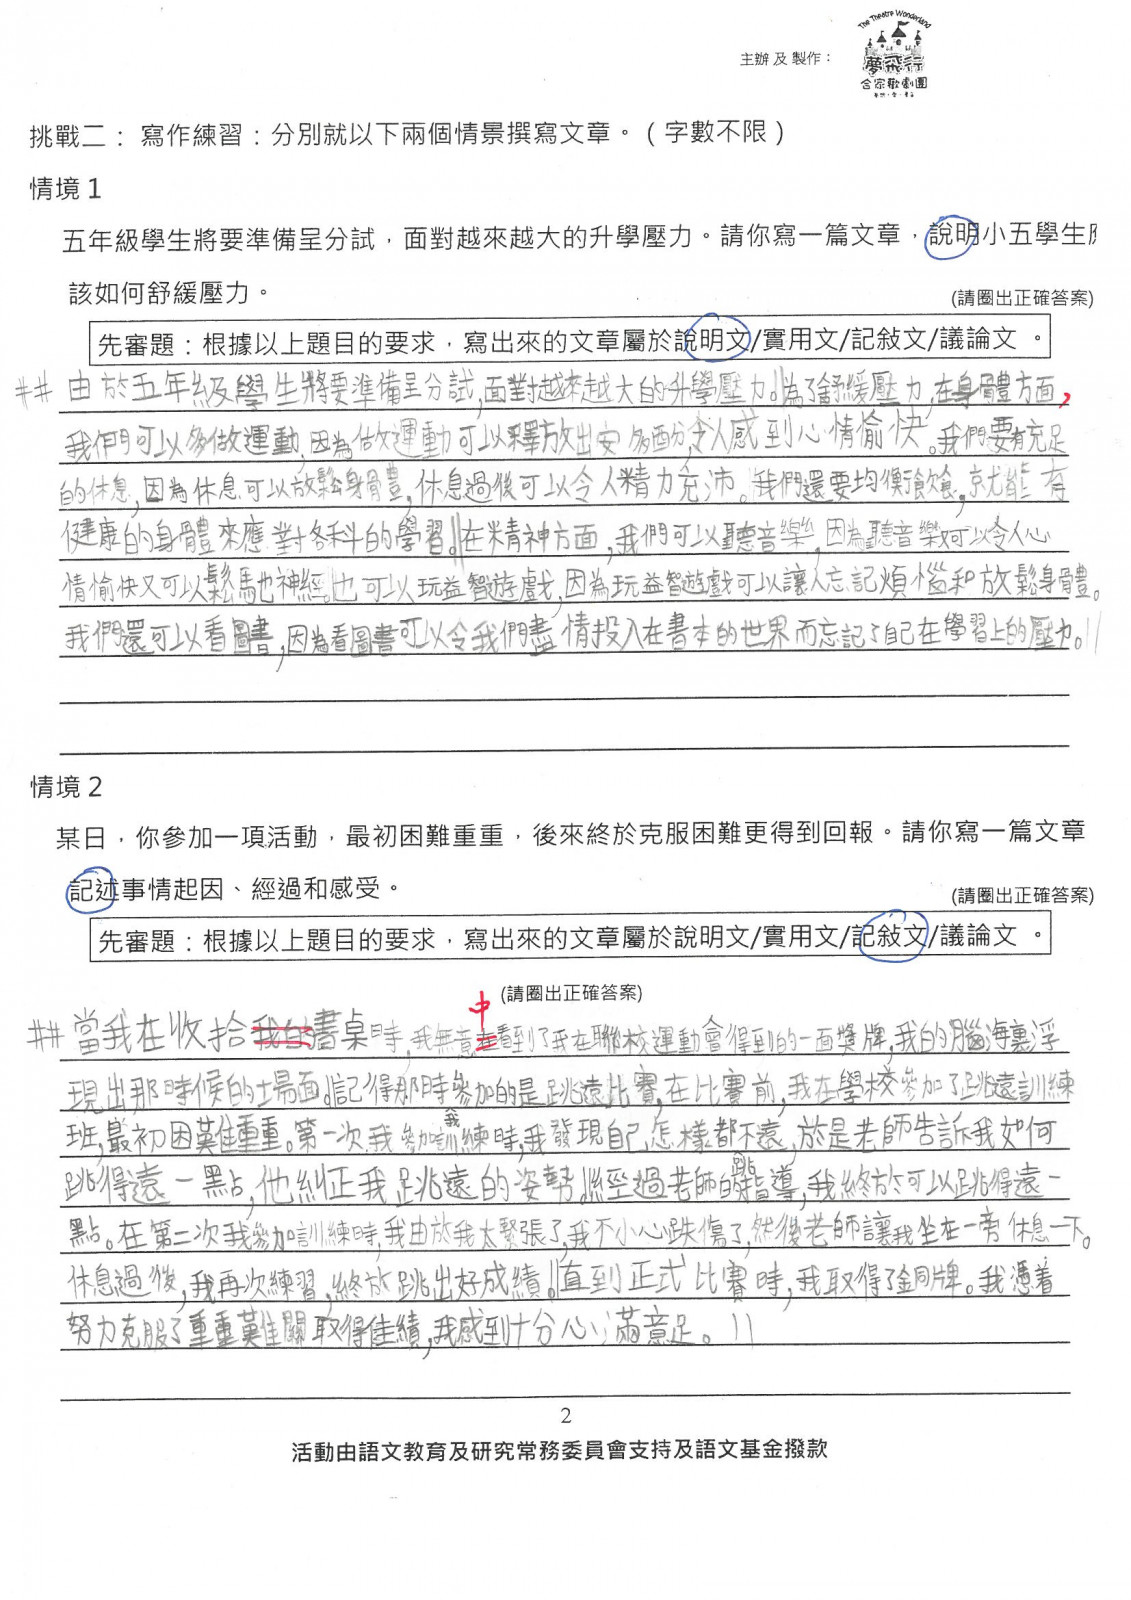 The Theatre Wonderland
主辦 及 製作：
夢飛行
合家歡劇團
挑戰二： 寫作練習：分別就以下兩個情景撰寫文章。（字數不限）
情境 1
五年級學生將要準備呈分試，面對越來越大的升學壓力。請你寫一篇文章，說明小五學生應
該如何舒緩壓力。
(請圈出正確答案)
先審題：根據以上題目的要求，寫出來的文章屬於說明文/實用文/記敍文/議論文 。
## 由於五年級學生將要準備呈分試,面對越來越大的升學壓力。||為了舒緩壓力,在身體方面,
我們可以多做運動,因為做運動可以釋放出安多酚,令人感到心情愉快。我們要有充足
的休息,因為休息可以放鬆身體,休息過後可以令人精力充沛。我們還要均衡飲食,就能有
健康的身體來應對各科的學習。||在精神方面,我們可以聽音樂,因為聽音樂可以令人心
情愉快又可以鬆馳神經。也可以玩益智遊戲,因為玩益智遊戲可以讓人忘記煩惱和放鬆身體。
我們還可以看圖書,因為看圖書可以令我們盡情投入在書本的世界而忘記了自己在學習上的壓力。||
情境 2
某日，你參加一項活動，最初困難重重，後來終於克服困難更得到回報。請你寫一篇文章
記述事情起因、經過和感受。
(請圈出正確答案)
先審題：根據以上題目的要求，寫出來的文章屬於說明文/實用文/記敍文/議論文 。
(請圈出正確答案)
中
## 當我在收拾我的書桌時,我無意在看到了我在聯校運動會得到的一面獎牌,我的腦海裏浮
現出那時候的場面。||記得那時參加的是跳遠比賽,在比賽前,我在學校參加了跳遠訓練
班,最初困難重重。第一次我參加訓練時,我發現自己怎樣都不遠,於是老師告訴我如何
跳得遠一點,他糾正我跳遠的姿勢。||經過老師的指導,我終於可以跳得遠一
點。在第二次我參加訓練時,我由於我太緊張了,我不小心跌傷了,然後老師讓我坐在一旁休息一下。
休息過後,我再次練習,終於跳出好成績。||直到正式比賽時,我取得了銅牌。我憑着
努力克服了重重難關取得佳績,我感到十分心滿意足。||
2
活動由語文教育及研究常務委員會支持及語文基金撥款